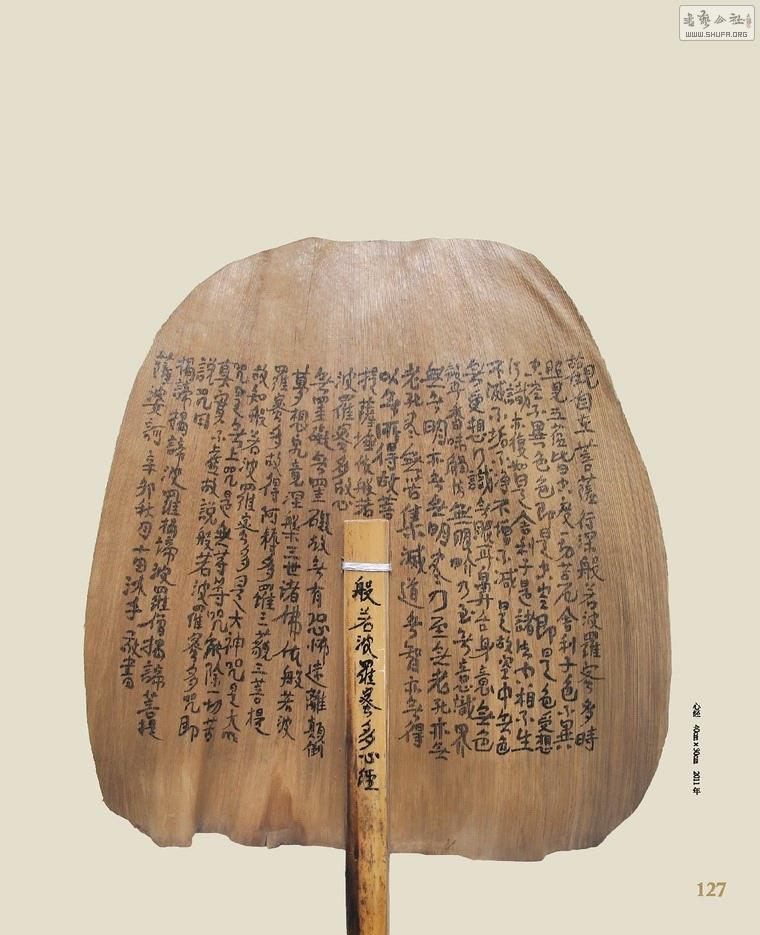 書藝公社
WWW.SHUFA.ORG
觀自在菩薩行深般若波羅蜜多時
照見五蘊皆空度一切苦厄舍利子色不異
空空不異色色即是空空即是色受想
行識亦復如是舍利子是諸法空相不生
不滅不垢不淨不增不減是故空中無色
無受想行識無眼耳鼻舌身意無色
聲香味觸法無眼界乃至無意識界
無無明亦無無明盡乃至無老死亦無
老死盡無苦集滅道無智亦無得
以無所得故菩
提薩埵依般若
波羅蜜多故心
無罣礙無罣礙故無有恐怖遠離顛倒
夢想究竟涅槃三世諸佛依般若波
羅蜜多故得阿耨多羅三藐三菩提
故知般若波羅蜜多是大神咒是大明
咒是無上咒是無等等咒能除一切苦
真實不虛故說般若波羅蜜多咒即
說咒曰
揭諦揭諦波羅揭諦波羅僧揭諦菩提
薩婆訶 辛卯秋月 沐手敬書
般若波羅蜜多心經
心经 40cm×50cm 2011年
127